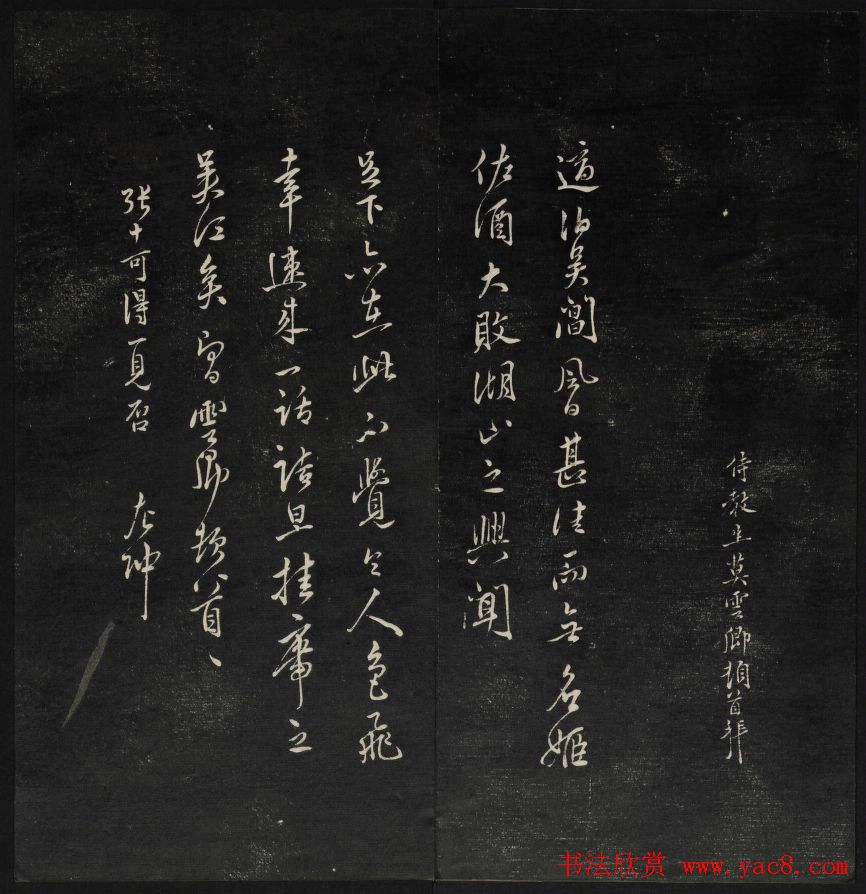 侍教生莫雲卿頓首拜
適泊吳閶風日甚佳而無名姬
佐酒大敗湖山之興聞
足下亦在此不覺令人色飛
幸速來一話詰旦挂席之
吳江矣 雲卿頓首
張十可得見否 左沖
书法欣赏 www.yac8.com